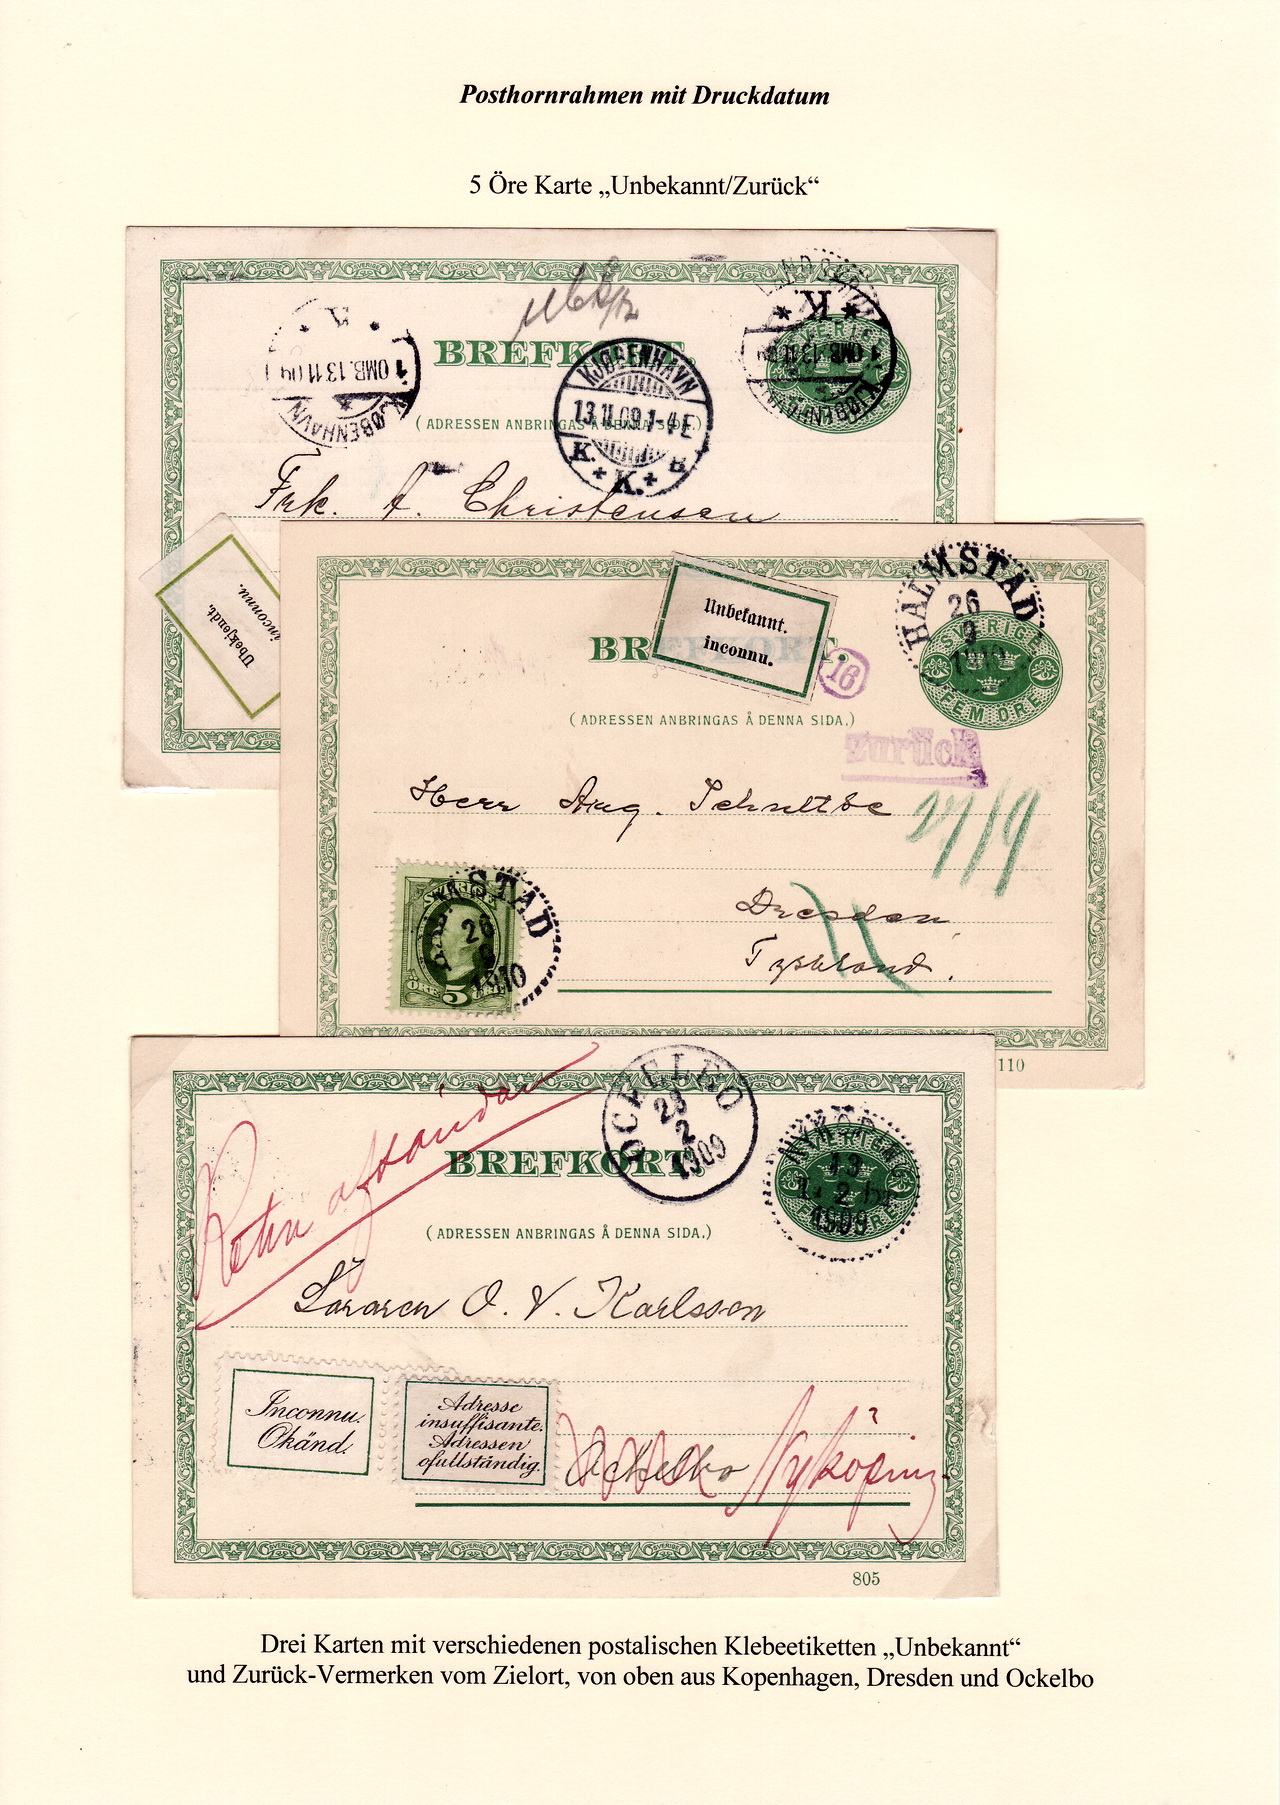 Posthornrahmen mit Druckdatum
5 Öre Karte „Unbekannt/Zurück“
BREFKORT.
KJØBENHAVN
13.11.09.1-4E
K. K. B
KJØBENHAVN
1 OMB.13 11 09
K
KJØBENHAVN
1 OMB.13 11 09
K
SVERIGE
(ADRESSEN ANBRINGAS Å DENNA SIDA.)
Frk. A. Christensen
Ubekjendt.
inconnu.
BREFKORT.
Unbekannt.
inconnu.
16
HALMSTAD
26
9
1910
SVERIGE
FEM ÖRE
(ADRESSEN ANBRINGAS Å DENNA SIDA.)
Zurück
Herr Aug. Schultze
27/9
Dresden
Tyskland.
SVERIGE
ÖRE 5
HALMSTAD
26
9
1910
110
Retur afsändar
BREFKORT.
OCKELBO
23
2
1909
SVERIGE
13
2
1909
(ADRESSEN ANBRINGAS Å DENNA SIDA.)
Läraren O. V. Karlsson
Inconnu.
Okänd.
Adresse
insuffisante.
Adressen
ofullständig.
Ockelbo Nyköping
?
805
Drei Karten mit verschiedenen postalischen Klebeetiketten „Unbekannt“
und Zurück-Vermerken vom Zielort, von oben aus Kopenhagen, Dresden und Ockelbo